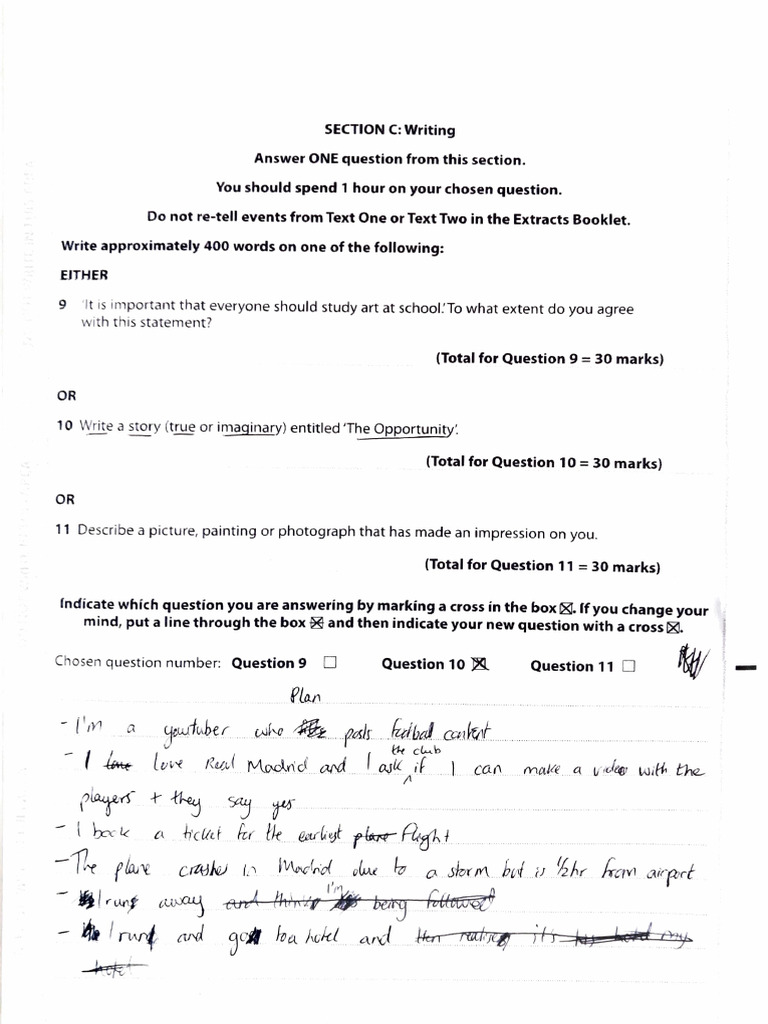 SECTION C: Writing
Answer ONE question from this section.
You should spend 1 hour on your chosen question.
Do not re-tell events from Text One or Text Two in the Extracts Booklet.
Write approximately 400 words on one of the following:
EITHER
9 'It is important that everyone should study art at school.' To what extent do you agree
with this statement?
(Total for Question 9 = 30 marks)
OR
10 Write a story (true or imaginary) entitled 'The Opportunity'.
(Total for Question 10 = 30 marks)
OR
11 Describe a picture, painting or photograph that has made an impression on you.
(Total for Question 11 = 30 marks)
Indicate which question you are answering by marking a cross in the box ☒. If you change your
mind, put a line through the box ☒ and then indicate your new question with a cross ☒.
Chosen question number: Question 9 ☐ Question 10 ☒ Question 11 ☐
Plan
- I'm a youtuber who posts football content
- I love Real Madrid and I ask the club if I can make a video with the
players + they say yes
- I book a ticket for the earliest flight
- The plane crashes in Madrid due to a storm but is 1/2hr from airport
- I run away and think I'm being followed
- I run and go to a hotel and then realise it's my
hotel